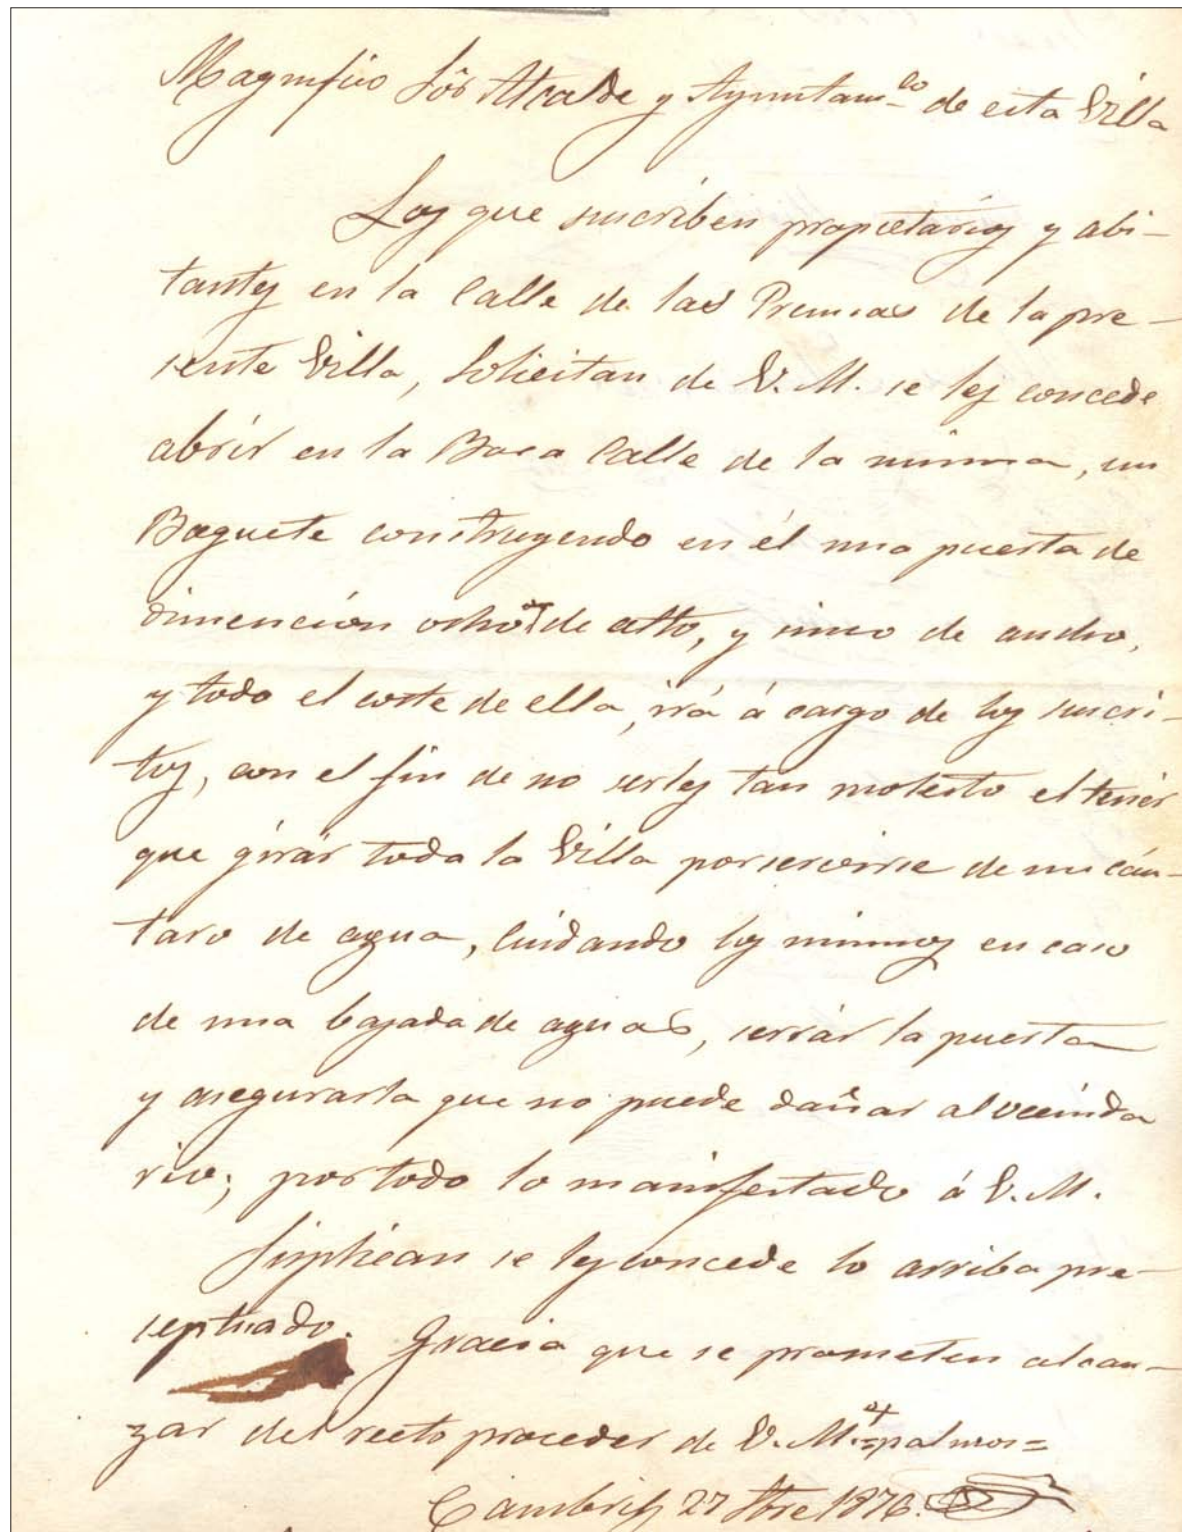 Magnifico Sôr Alcalde y Ayuntam.to de esta Villa
Los que suscriben propietarios y abi-
tantes en la Calle de las Premsas de la pre-
sente Villa, Solicitan de V. M. se les concede
abrir en la Boca Calle de la misma, un
Boquete construyendo en él una puerta de
dimención ocho de alto, y sinco de ancho,
y todo el coste de ella, irá á cargo de los suscri-
tos, con el fin de no serles tan molesto el tener
que girár toda la Villa por servirse de un cán-
taro de agua, Cuidando los mismos en caso
de una bajada de aguas, serrár la puerta
y asegurarla que no puede dañar al vecinda
rio; por todo lo manifestado á V. M.
Suplican se les concede lo arriba pre-
septuado. Gracia que se prometen alcan-
zar del recto proceder de V. M. =palmos=
Cambrils 27 1876.